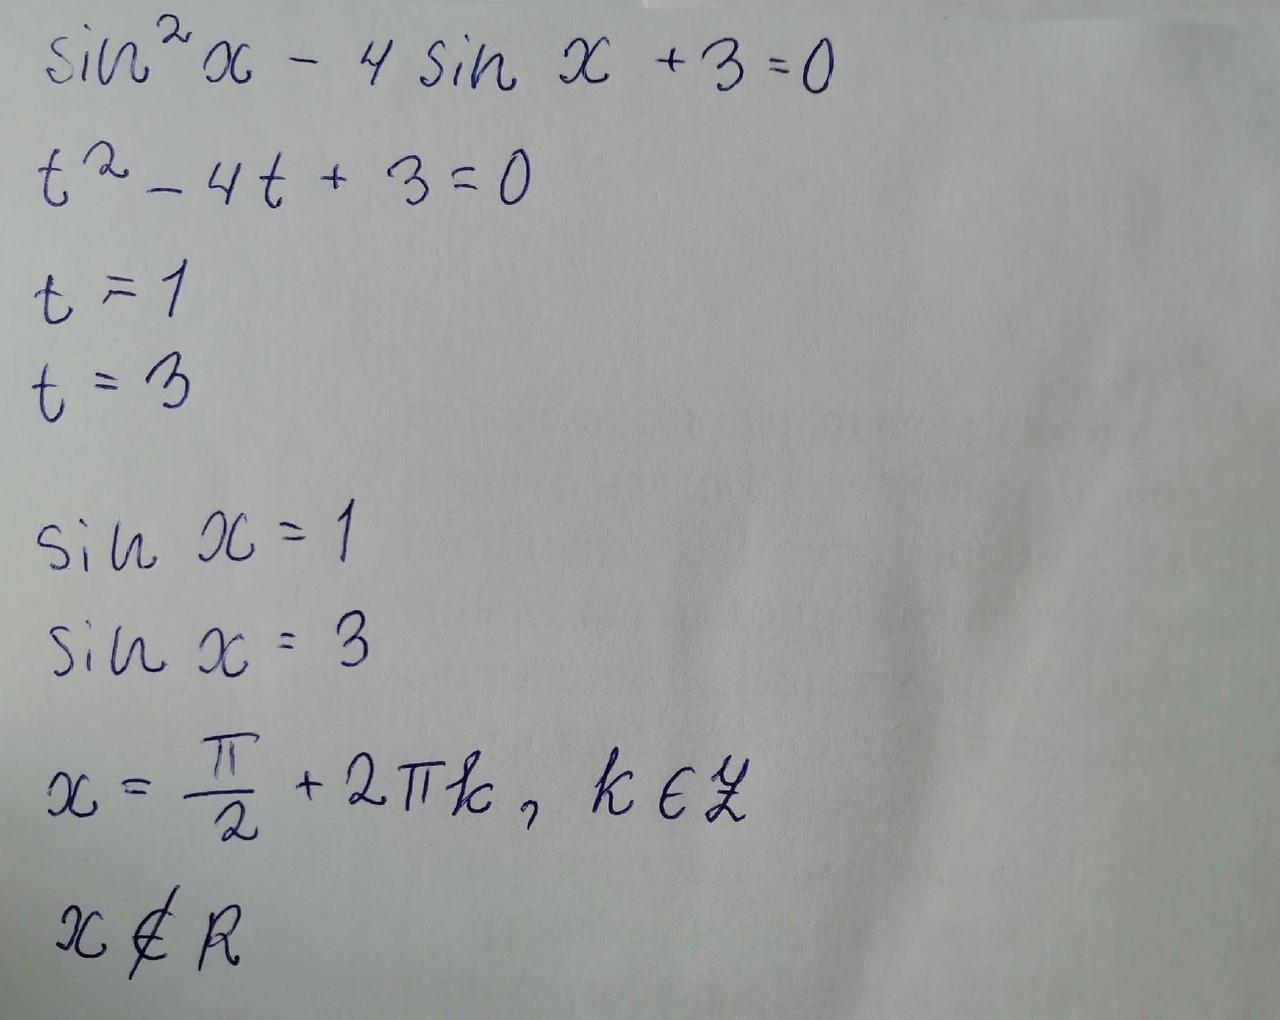 sin²x - 4 sin x + 3 = 0
t² - 4t + 3 = 0
t = 1
t = 3
sin x = 1
sin x = 3
x = π/2 + 2πk, k ∈ ℤ
x ∉ R